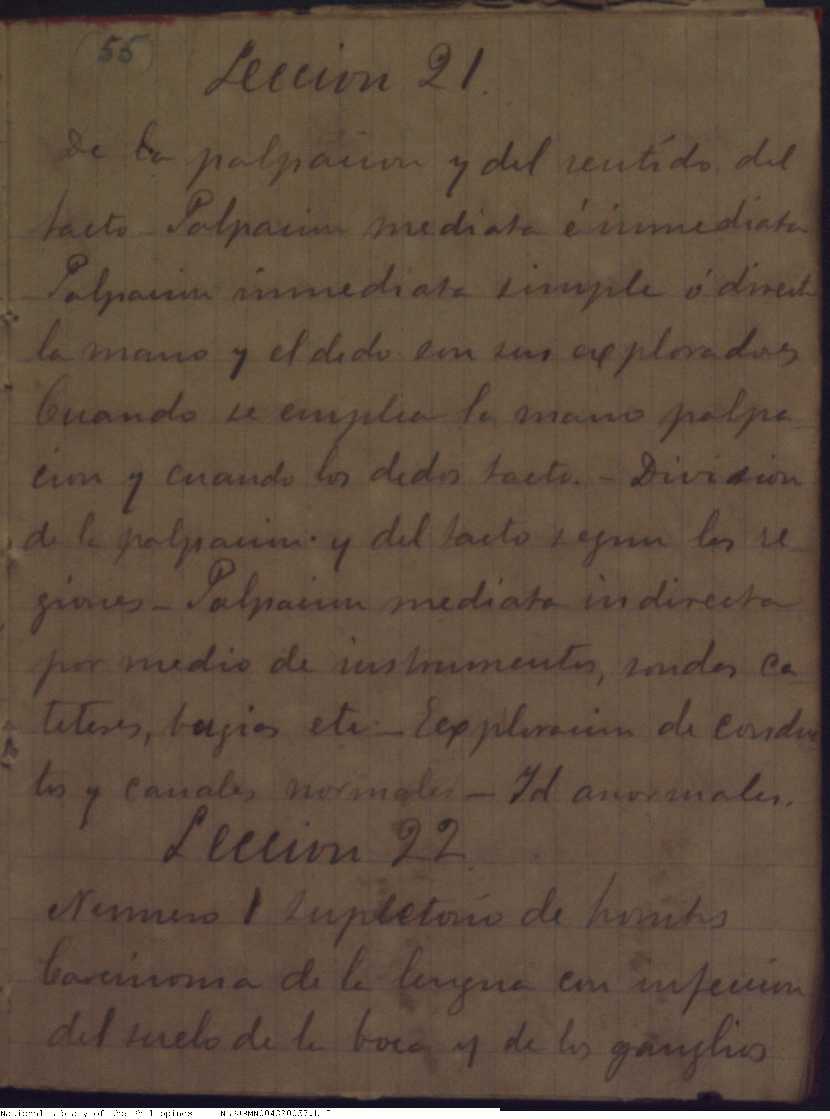 55
Leccion 21.
De la palpacion y del sentido del
tacto - Palpacion mediata é inmediata
Palpacion inmediata simple ó direct
la mano y el dedo son sus exploradores
Cuando se emplea la mano palpa
cion y cuando los dedos tacto. - Division
de la palpacion y del tacto segun las re
giones - Palpacion mediata indirecta
por medio de instrumentos, sondas ca
teteres, bugias etc - Exploracion de condu
tos y canales normales - Id anormales.
Leccion 22.
Numero 1 supletorio de hombres
Carcinoma de la lengua con infeccion
del suelo de la boca y de los ganglios
National Library of the Philippines